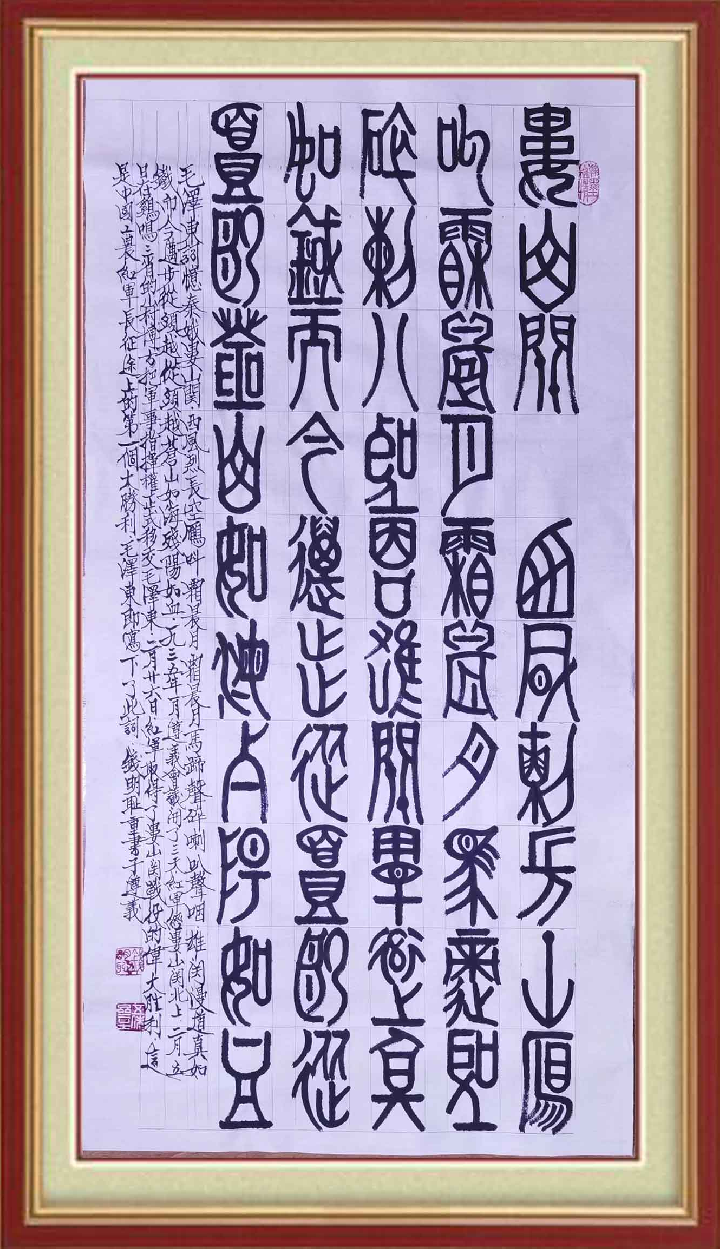 婁山關 西風烈長空鴈
叫霜晨月霜晨月馬蹄聲
碎喇叭聲咽雄關漫道真
如鐵而今邁步從頭越從
頭越蒼山如海殘陽如血
毛澤東詞憶秦娥婁山関西風烈長空鴈叫霜晨月霜晨月馬蹄聲碎喇叭聲咽雄関漫道真如
鐵而今邁步從頭越從頭越蒼山如海殘陽如血一九三五年一月遵義會議開了三天紅軍經婁山関北上二月五
日在鷄鳴三省的小村博古把軍事指揮權正式移交毛澤東二月廿六日紅軍取得了婁山関戰役的偉大勝利這
是中國工農紅軍長征途上的第一個大勝利毛澤東即寫下了此詞 明重書于遵義